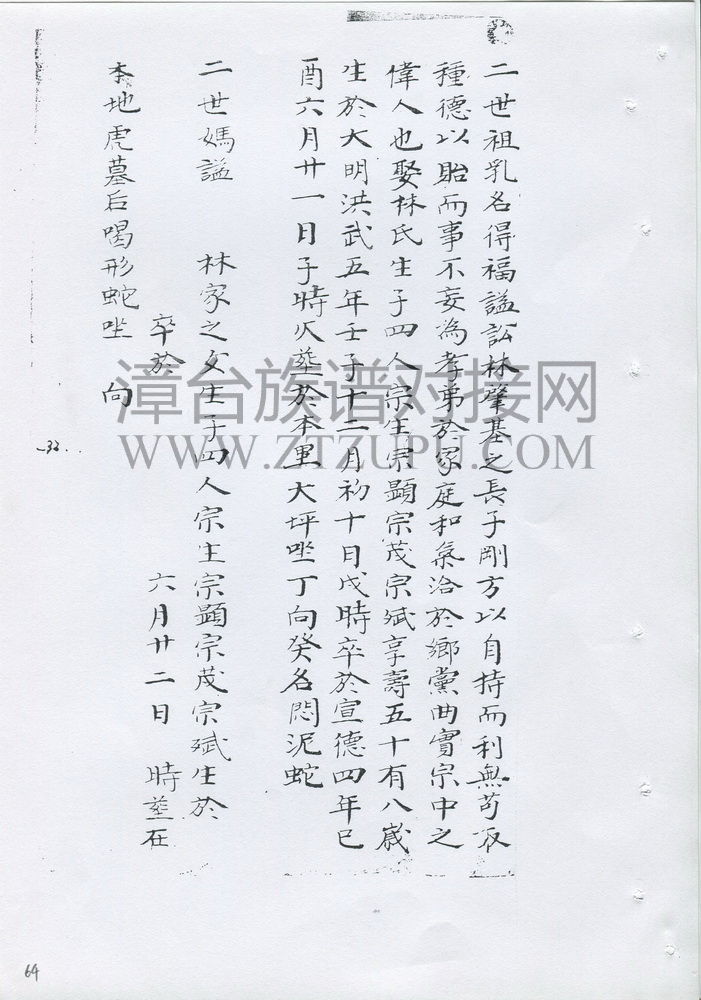 二世祖乳名得福謚訟林肇基之長子剛方以自持而利無苟取
種德以貽而事不妄為孝弟於家庭和氣洽於鄉黨曲實宗中之
偉人也娶林氏生子四人宗生宗顯宗茂宗斌享壽五十有八歲
生於大明洪武五年壬子十二月初十日戌時卒於宣德四年己
酉六月廿一日子時仄塟於本里大坪坐丁向癸名悶泥蛇
二世媽謚 林家之女生子四人宗生宗顯宗茂宗斌生於
卒於 六月廿二日 時塟在
本地虎墓后喝形蛇坐 向
漳台族谱对接网
WWW.ZTZUPU.COM
32
64